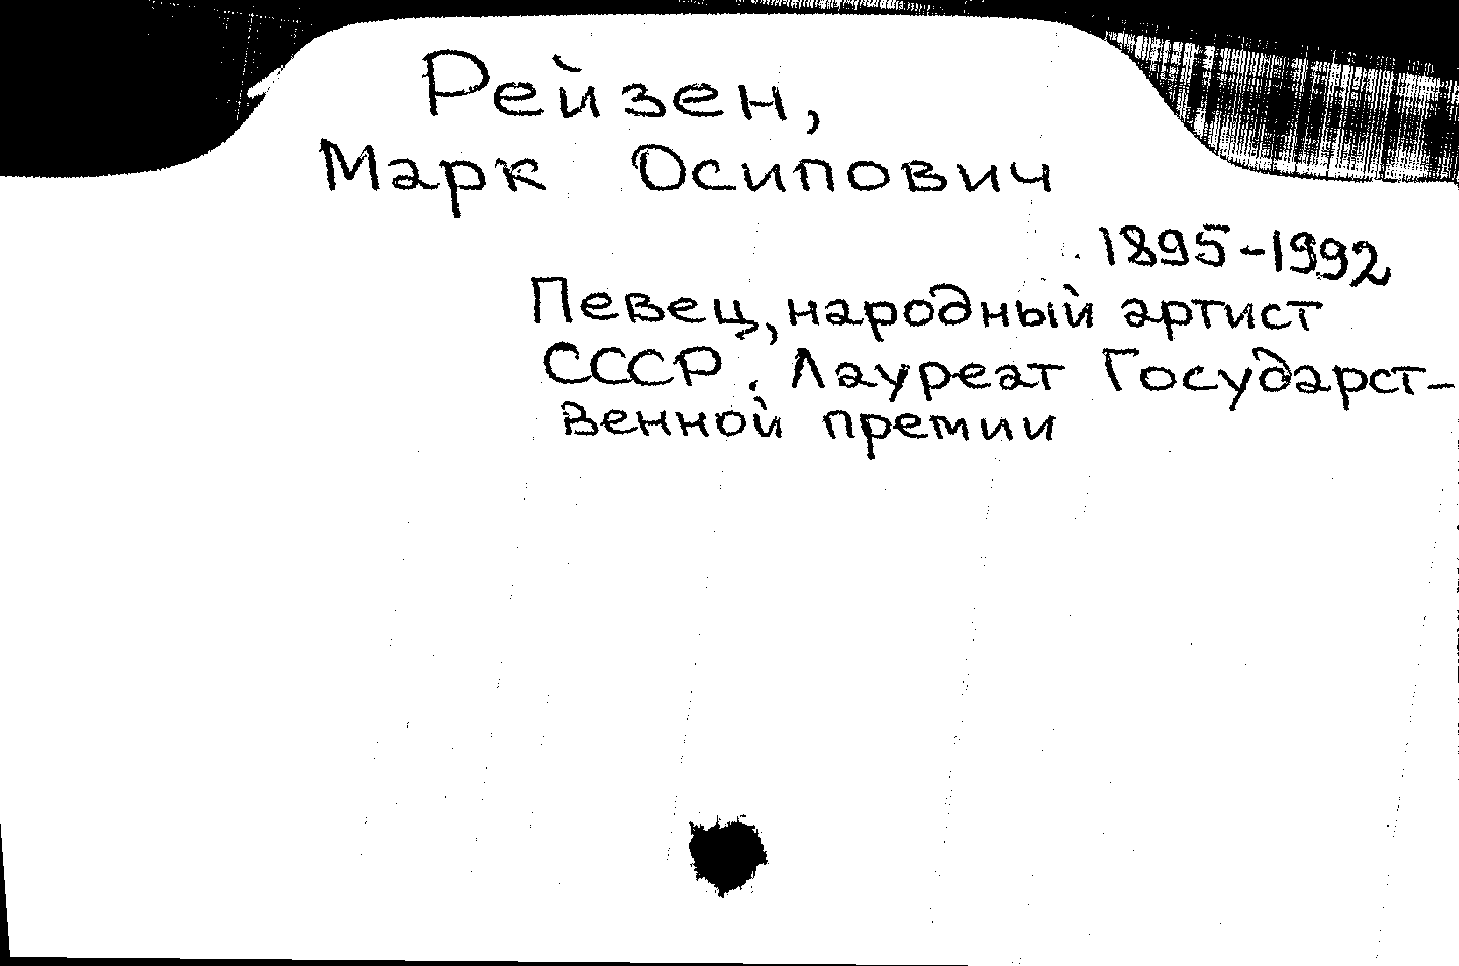 Рейзен,
Марк Осипович
1895-1992
Певец, народный артист
СССР. Лауреат Государст-
венной премии